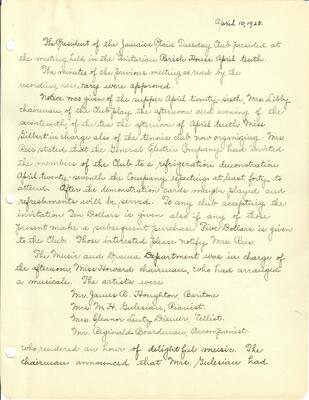 April 10, 1928.
The President of the Jamaica Plain Tuesday Club presided at
the meeting held in the Unitarian Parish House April tenth.
The minutes of the previous meeting as read by the
recording secretary were approved.
Notice was given of the supper April twenty-sixth, Mrs. Libby
chairman of the Club play the afternoon and evening of the
seventeenth, of the tea the afternoon of April tenth, Miss
Gilbert in charge also of the tennis club now organizing. Mrs.
Rees stated that the General Electric Company had invited
the members of the Club to a refrigeration demonstration
April twenty-seventh the Company expecting at least forty, to
attend. After the demonstration cards maybe played and
refreshments will be served. To any club accepting the
invitation Ten Dollars is given also if any of those
present make a subsequent purchase Five Dollars is given
to the Club. Those interested please notify Mrs. Rees.
The Music and Drama Department was in charge of
the afternoon, Miss Howard chairman, who had arranged
a musicale. The artists were
Mr. James R. Houghton, Baritone
Mrs. M. H. Gulesian, Pianist.
Mrs. Eleanor Leutz Diemer, Cellist.
Mr. Reginald Boardman, Accompanist
who rendered an hour of delightful music. The
chairman announced that Mrs. Gulesian had